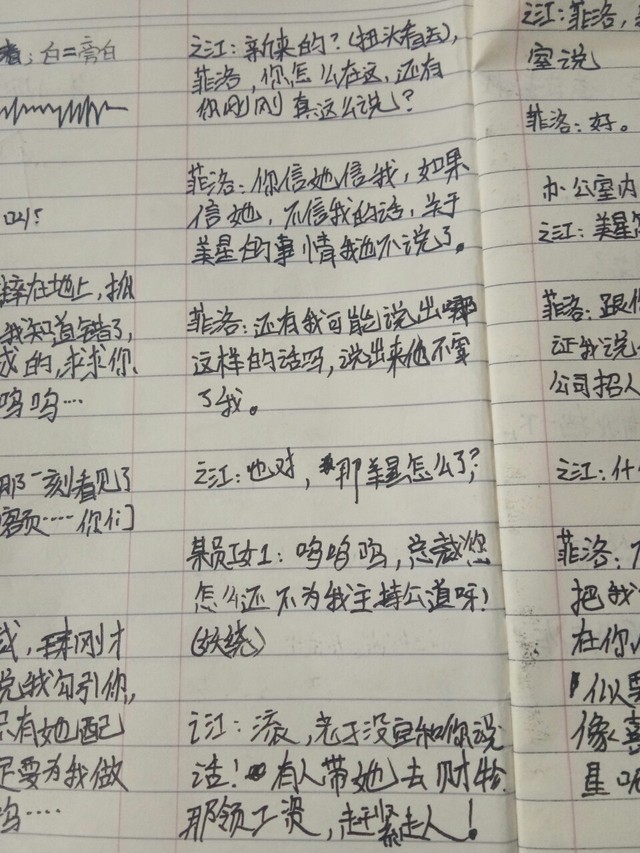 者：白=旁白
摔在地上，抓
我知道错了，
成的，求求你
呜呜…
那一刻看见了
客页……你们
或，刚才
说我勾引你，
只有她配
是要为我做
呜……
之江：新来的？(扭头看去)，
菲洛，你怎么在这，还有
你刚刚真这么说？
菲洛：你信她信我，如果
信她，不信我的话，关于
美星的事情我也不说了。
菲洛：还有我可能说出哪
这样的话吗，说出来他不要
了我。
之江：也对，那美星怎么了？
某员工女1：呜呜呜，总裁您
怎么还不为我主持公道呀！
(妖娆)
之江：滚，老子没空和你说
话！有人带她去财物
那领工资，赶紧走人！
之江：菲洛，
室说
菲洛：好。
办公室内
之江：美星
菲洛：跟你
证我说
公司招人
之江：什
菲洛：
把我
在你
似要
像
星